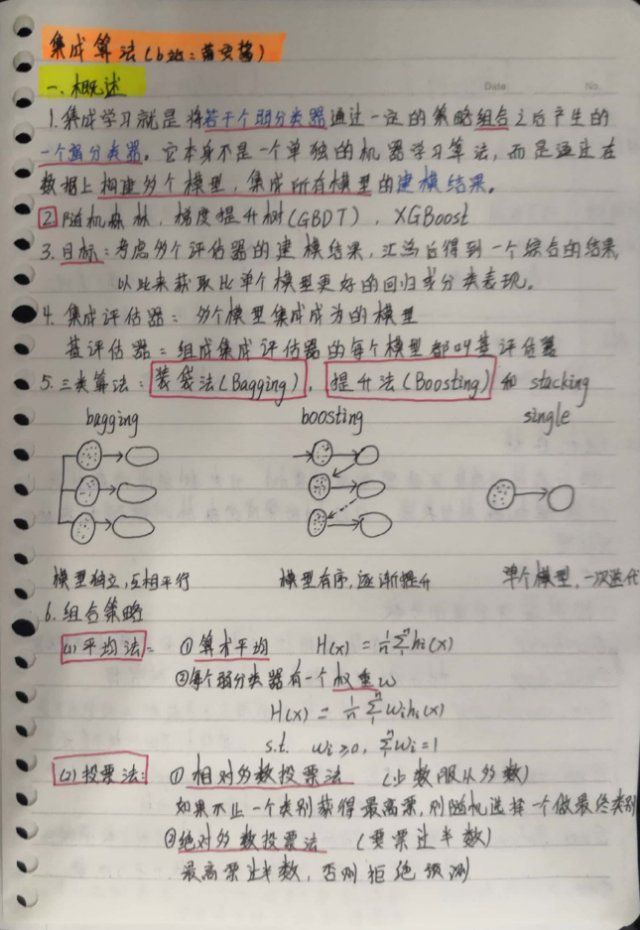 集成算法(b站:菊安酱)
一、概述
Date No.
1.集成学习就是将若干个弱分类器通过一定的策略组合之后产生的
一个强分类器。它本身不是一个单独的机器学习算法,而是通过在
数据上构建多个模型,集成所有模型的建模结果。
2.随机森林,梯度提升树(GBDT),XGBoost
3.目标:考虑多个评估器的建模结果,汇总后得到一个综合的结果,
以此来获取比单个模型更好的回归或分类表现。
4.集成评估器:多个模型集成成为的模型
基评估器:组成集成评估器的每个模型都叫基评估器
5.三类算法:装袋法(Bagging),提升法(Boosting)和 stacking
bagging boosting single
模型独立,互相平行 模型有序,逐渐提升 单个模型,一次迭代
6.组合策略
(1)平均法: ①算术平均 H(x) = 1/n Σ₁ⁿ hi(x)
②每个弱分类器有一个权重w
H(x) = 1/n Σ₁ⁿ wihi(x)
s.t. wi≥0, Σ₁ⁿ wi=1
(2)投票法: ①相对多数投票法 (少数服从多数)
如果不止一个类别获得最高票,则随机选择一个做最终类别
②绝对多数投票法 (要票过半数)
最高票过半数,否则拒绝预测